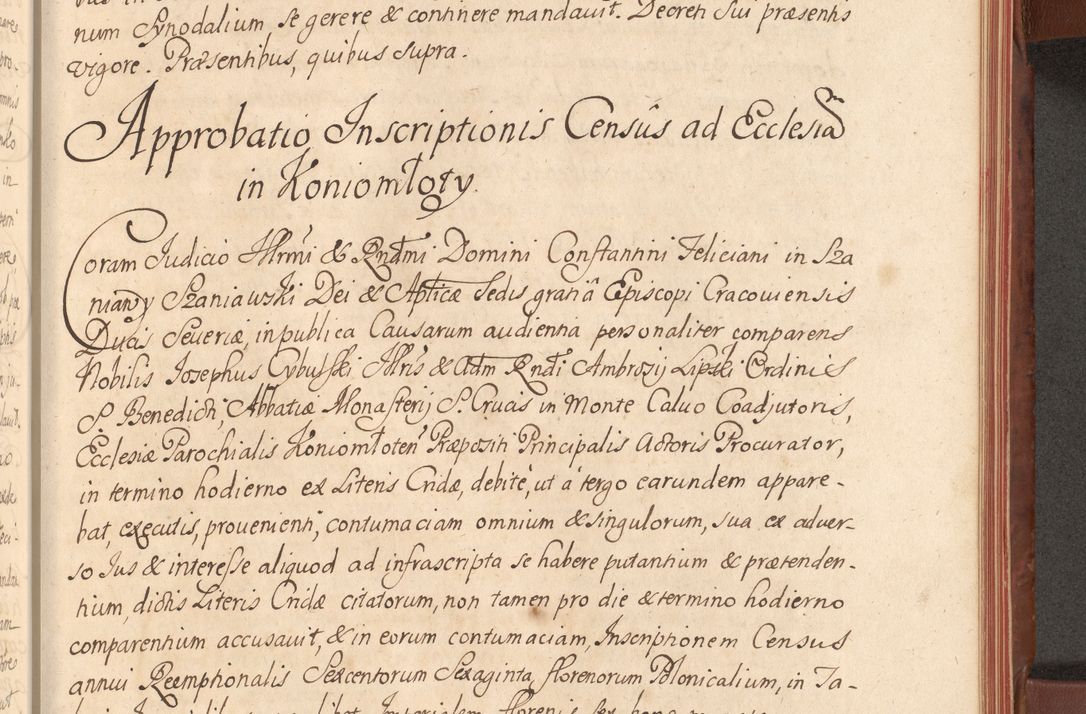 num Synodalium se gerere & continere mandavit. Decreti sui præsentis
vigore. Præsentibus, quibus supra.
Approbatio Inscriptionis Censûs ad Ecclesiã
in Koniomłoty.
Coram Judicio Illrmi & Rndmi Domini Constantini Feliciani in Sza
niawy Szaniawski Dei & Apticæ Sedis gratiâ Episcopi Cracoviensis
Ducis Severiæ, in publica Causarum audientia personaliter comparens
Nobilis Josephus Cybulski Illris & Adm Rndi Ambrosij Lipski Ordinis
S. Benedicti, Abbatiæ Monasterij S. Crucis in Monte Calvo Coadjutoris,
Ecclesiæ Parochialis Koniomłoten Præpositi Principalis Actoris Procurator,
in termino hodierno ex Literis Cndæ, debitè, ut à tergo earundem appare-
bat, executis, provenienti, contumaciam omnium & singulorum, sua ex adver-
so Jus & interesse aliquod ad infrascripta se habere putantium & prætenden-
tium, dictis Literis Cndæ citatorum, non tamen pro die & termino hodierno
comparentium accusavit, & in eorum contumaciam, Inscriptionem Census
annui Reemptionalis Sexcentorum Sexaginta, florenorum Polonicalium, in Ta-